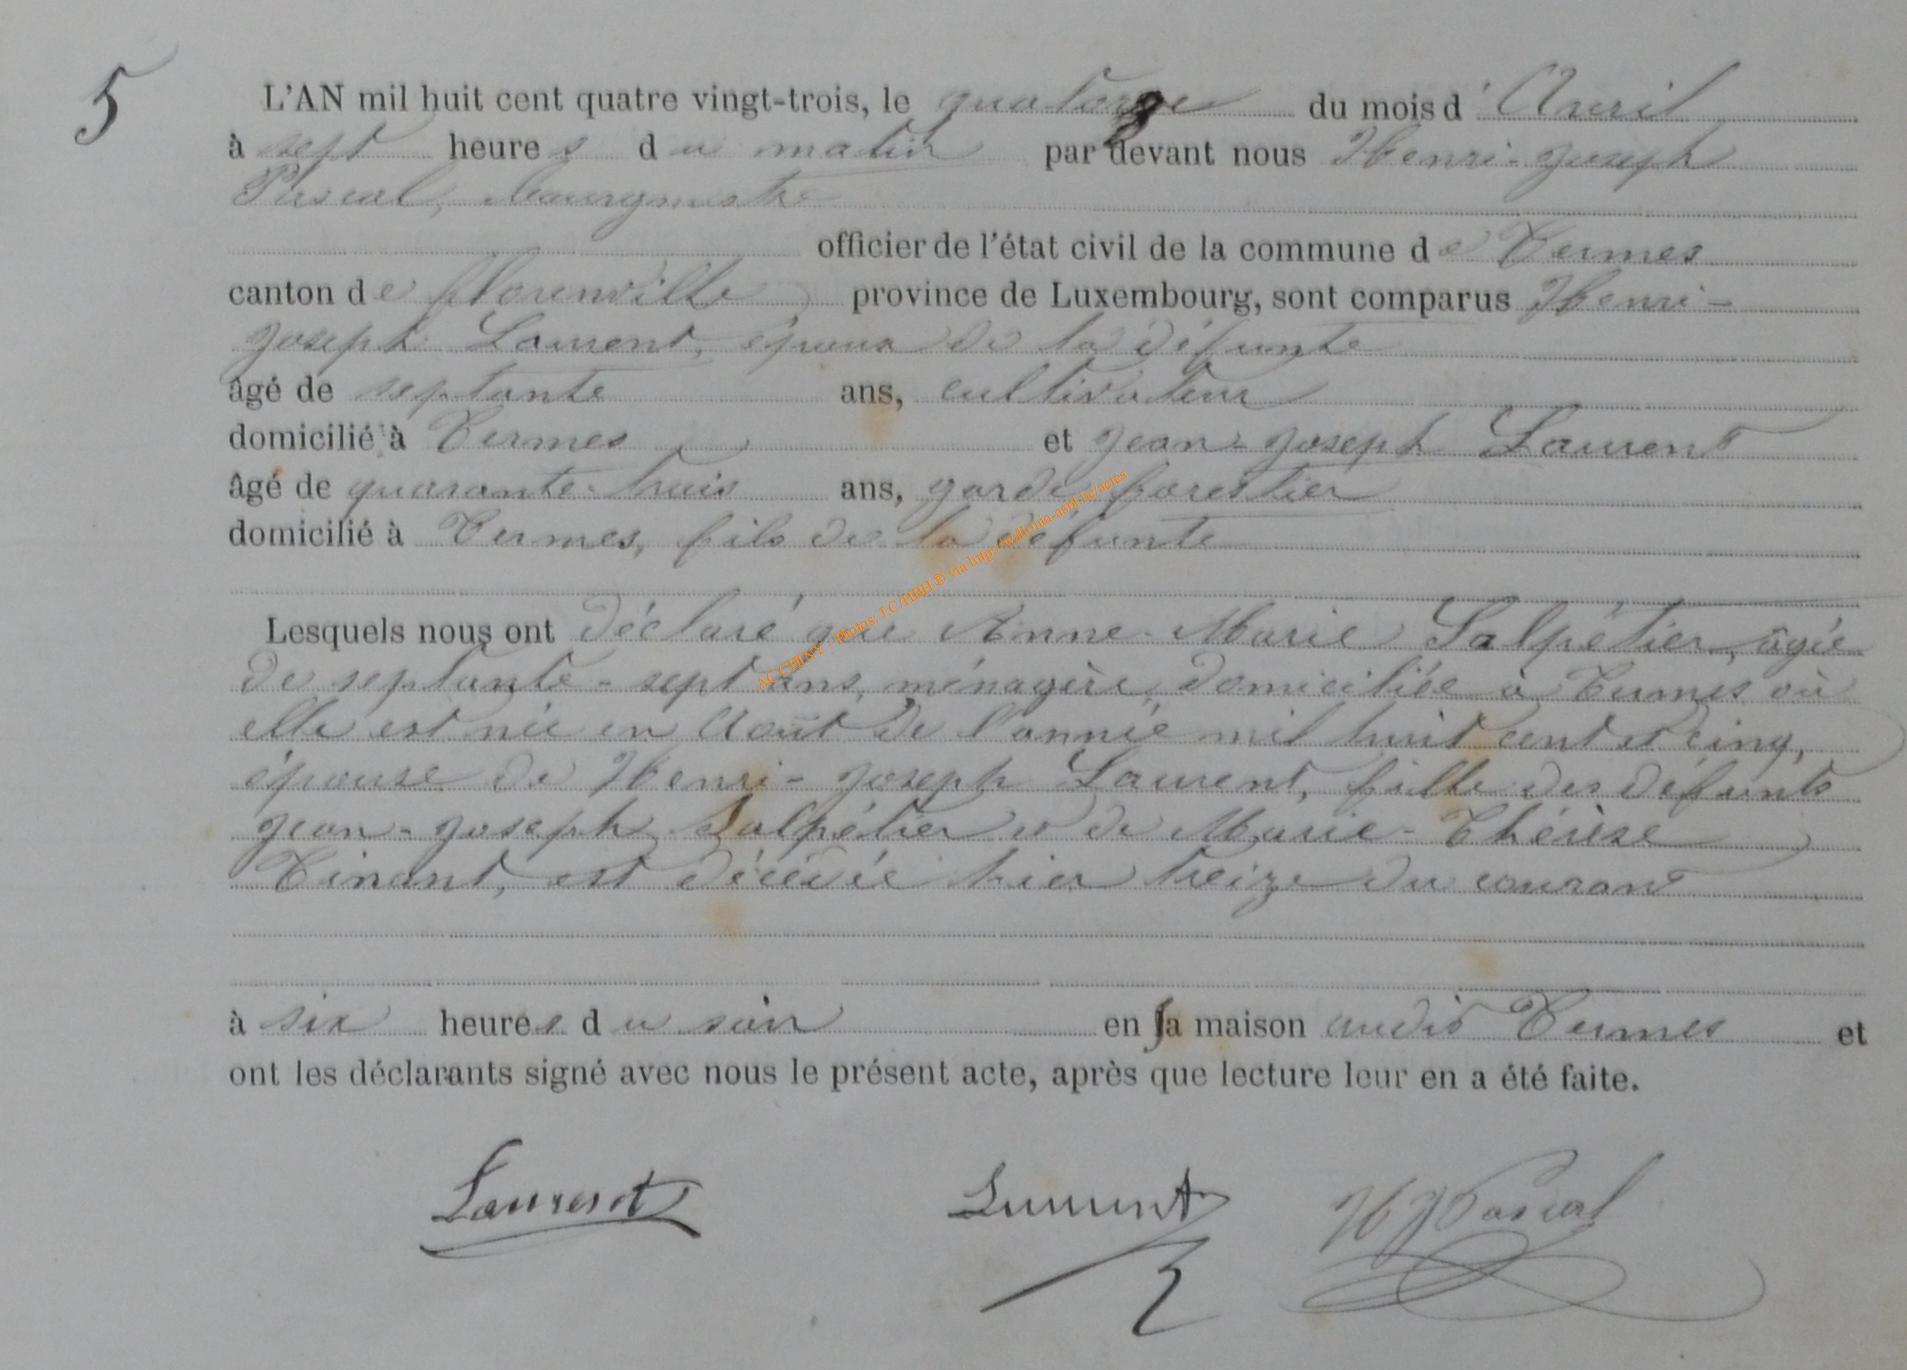 5
L'AN mil huit cent quatre vingt-trois, le quatorze du mois d'Avril
à sept heures du matin par devant nous Henri-Joseph
Pascal, bourgmestre
officier de l'état civil de la commune de Termes
canton de florenville, province de Luxembourg, sont comparus Henri-
Joseph Laurent, époux de la défunte
âgé de septante ans, cultivateur
domicilié à Termes et Jean-Joseph Laurent
âgé de quarante-trois ans, garde forestier
domicilié à Termes, fils de la défunte
ACCHINY - Photos: J.C/HBH ® via http://wallonia-asbl-be/actes
Lesquels nous ont déclaré que Anne-Marie Salpêtier, âgée
de septante-sept ans, ménagère, domiciliée à Termes où
elle est née en Août de l'année mil huit cent et cinq,
épouse de Henri-Joseph Laurent, fille des défunts
Jean-Joseph Salpêtier et de Marie-Thérèse
Tinant, est décédée hier treize du courant
à six heures du soir en sa maison audit Termes et
ont les déclarants signé avec nous le présent acte, après que lecture leur en a été faite.
Laurent Laurent HJPascal